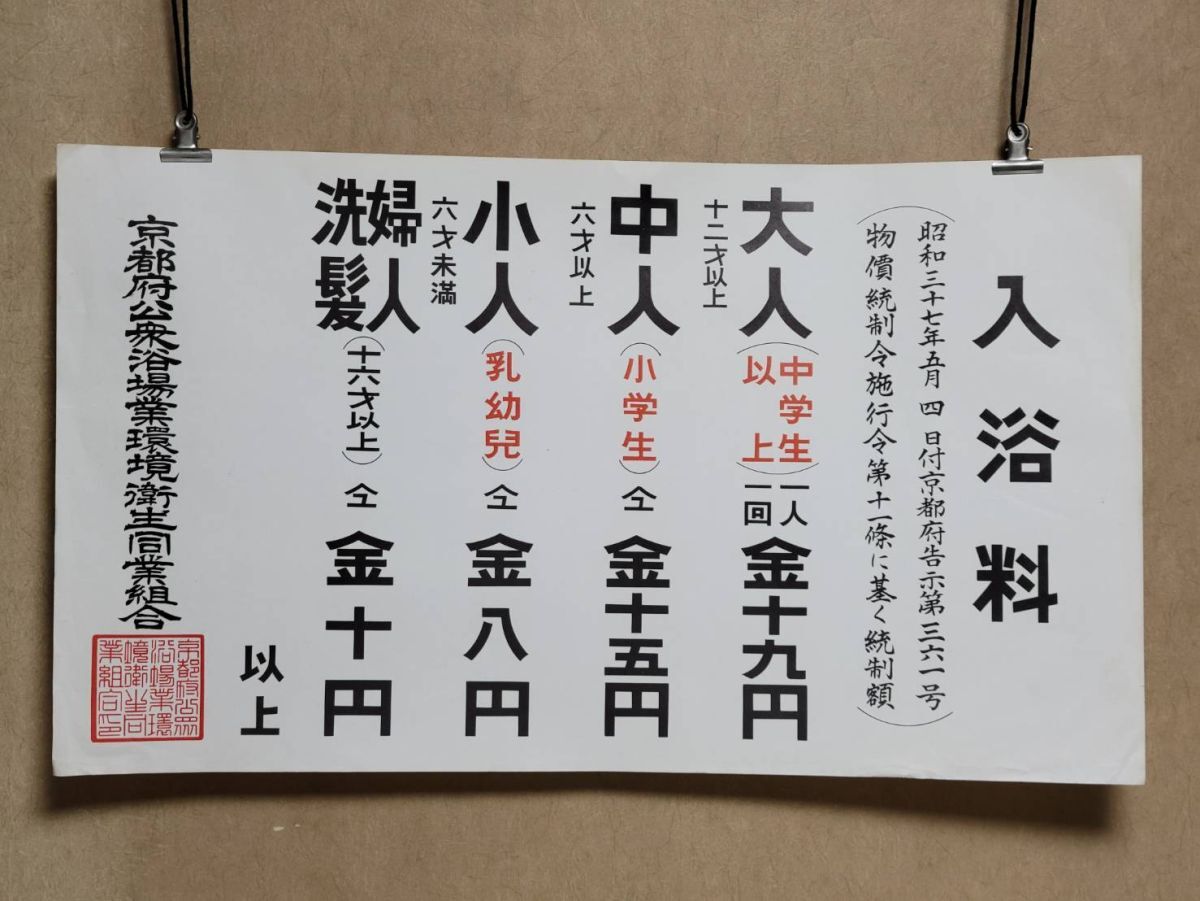 入浴料
(昭和三十七年五月四日付京都府告示第三六一号
物價統制令施行令第十一條に基く統制額)
大人(中学生以上)一人一回金十九円
十二才以上
中人(小学生)仝金十五円
六才以上
小人(乳幼兒)仝金八円
六才未満
婦人洗髪(十六才以上)仝金十円
以上
京都府公衆浴場業環境衛生同業組合
京都府公衆
浴場業環
境衛生同
業組合印